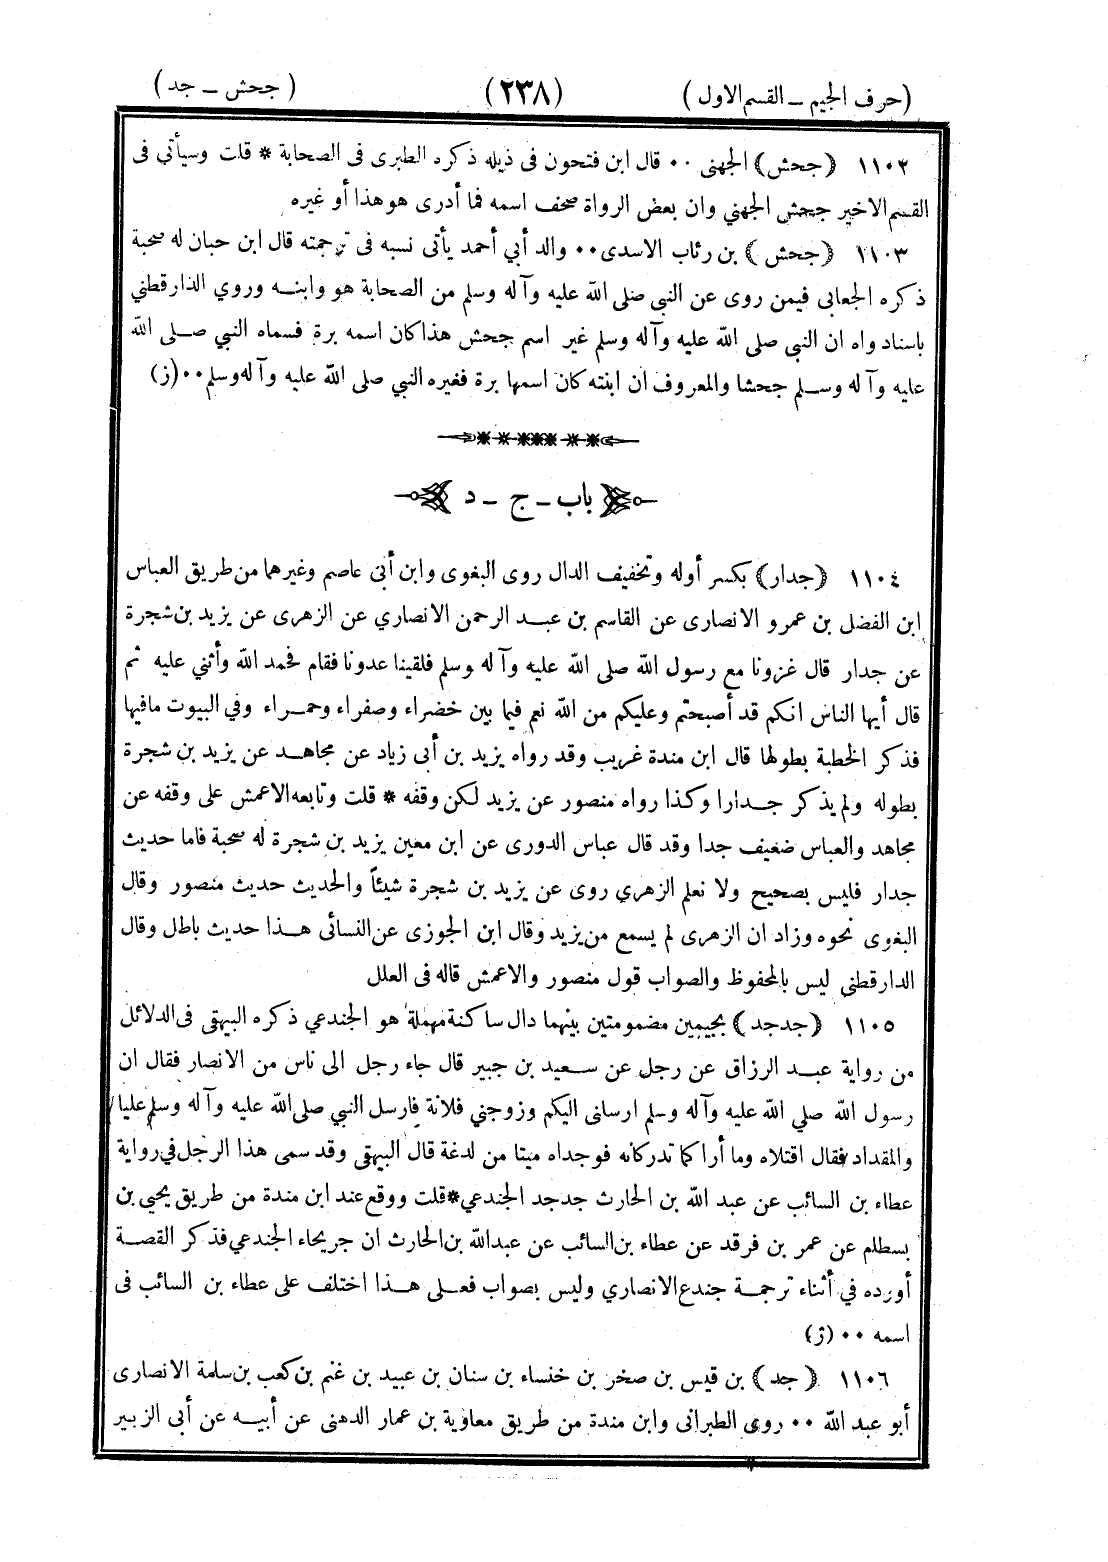 (حرف الجيم ــ القسم الاول) (٢٣٨) (جحش ــ جد)
١١٠٢ (جحش) الجهنى ٠٠ قال ابن فتحون فى ذيله ذكره الطبرى فى الصحابة * قلت وسيأتى فى
القسم الاخير جحش الجهني وان بعض الرواة صحف اسمه فما أدرى هو هذا أو غيره
١١٠٣ (جحش) بن رئاب الاسدى ٠٠ والد أبي أحمد يأتى نسبه فى ترجمته قال ابن حبان له صحبة
ذكره الجعابى فيمن روى عن النبى صلى الله عليه وآله وسلم من الصحابة هو وابنه وروي الدارقطني
باسناد واه ان النبى صلى الله عليه وآله وسلم غير اسم جحش هذا كان اسمه برة فسماه النبي صلى الله
عليه وآله وسلم جحشا والمعروف ان ابنته كان اسمها برة فغيره النبي صلى الله عليه وآله وسلم ٠٠ (ز)
باب ــ ج ــ د
١١٠٤ (جدار) بكسر أوله وتخفيف الدال روى البغوى وابن أبى عاصم وغيرهما من طريق العباس
ابن الفضل بن عمرو الانصارى عن القاسم بن عبد الرحمن الانصاري عن الزهرى عن يزيد بن شجرة
عن جدار قال غزونا مع رسول الله صلى الله عليه وآله وسلم فلقينا عدونا فقام فحمد الله وأثني عليه ثم
قال أيها الناس انكم قد أصبحتم وعليكم من الله نعم فيما بين خضراء وصفراء وحمراء وفي البيوت مافيها
فذكر الخطبة بطولها قال ابن مندة غريب وقد رواه يزيد بن أبى زياد عن مجاهد عن يزيد بن شجرة
بطوله ولم يذكر جدارا وكذا رواه منصور عن يزيد لكن وقفه * قلت وتابعه الاعمش على وقفه عن
مجاهد والعباس ضعيف جدا وقد قال عباس الدورى عن ابن معين يزيد بن شجرة له صحبة فاما حديث
جدار فليس بصحيح ولا نعلم الزهري روى عن يزيد بن شجرة شيئاً والحديث حديث منصور وقال
البغوى نحوه وزاد ان الزهرى لم يسمع من يزيد وقال ابن الجوزى عن النسائى هذا حديث باطل وقال
الدارقطني ليس بالمحفوظ والصواب قول منصور والاعمش قاله فى العلل
١١٠٥ (جدجد) بجيمين مضمومتين بينهما دال ساكنة مهملة هو الجندعي ذكره البيهقى فى الدلائل
من رواية عبد الرزاق عن رجل عن سعيد بن جبير قال جاء رجل الى ناس من الانصار فقال ان
رسول الله صلي الله عليه وآله وسلم ارسانى اليكم وزوجني فلانة فارسل النبي صلى الله عليه وآله وسلم عليا
والمقداد فقال اقتلاه وما أراكما تدركانه فوجداه ميتا من لدغة قال البيهقى وقد سمى هذا الرجل في رواية
عطاء بن السائب عن عبد الله بن الحارث جدجد الجندعي * قلت ووقع عند ابن مندة من طريق يحيى بن
بسطلم عن عمر بن فرقد عن عطاء بن السائب عن عبدالله بن الحارث ان جريحاء الجندعي فذكر القصة
أورده في أثناء ترجمة جندع الانصاري وليس بصواب فعلى هذا اختلف على عطاء بن السائب فى
اسمه ٠٠ (ز)
١١٠٦ (جد) بن قيس بن صخر بن خنساء بن سنان بن عبيد بن غنم بن كعب بن سلمة الانصارى
أبو عبد الله ٠٠ روى الطبرانى وابن مندة من طريق معاوية بن عمار الدهنى عن أبيه عن أبى الزبير